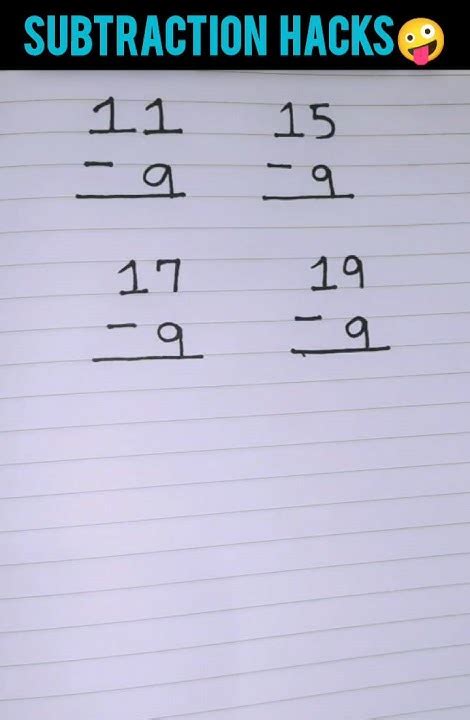 SUBTRACTION HACKS🤪
11 15
- 9 - 9
17 19
- 9 - 9